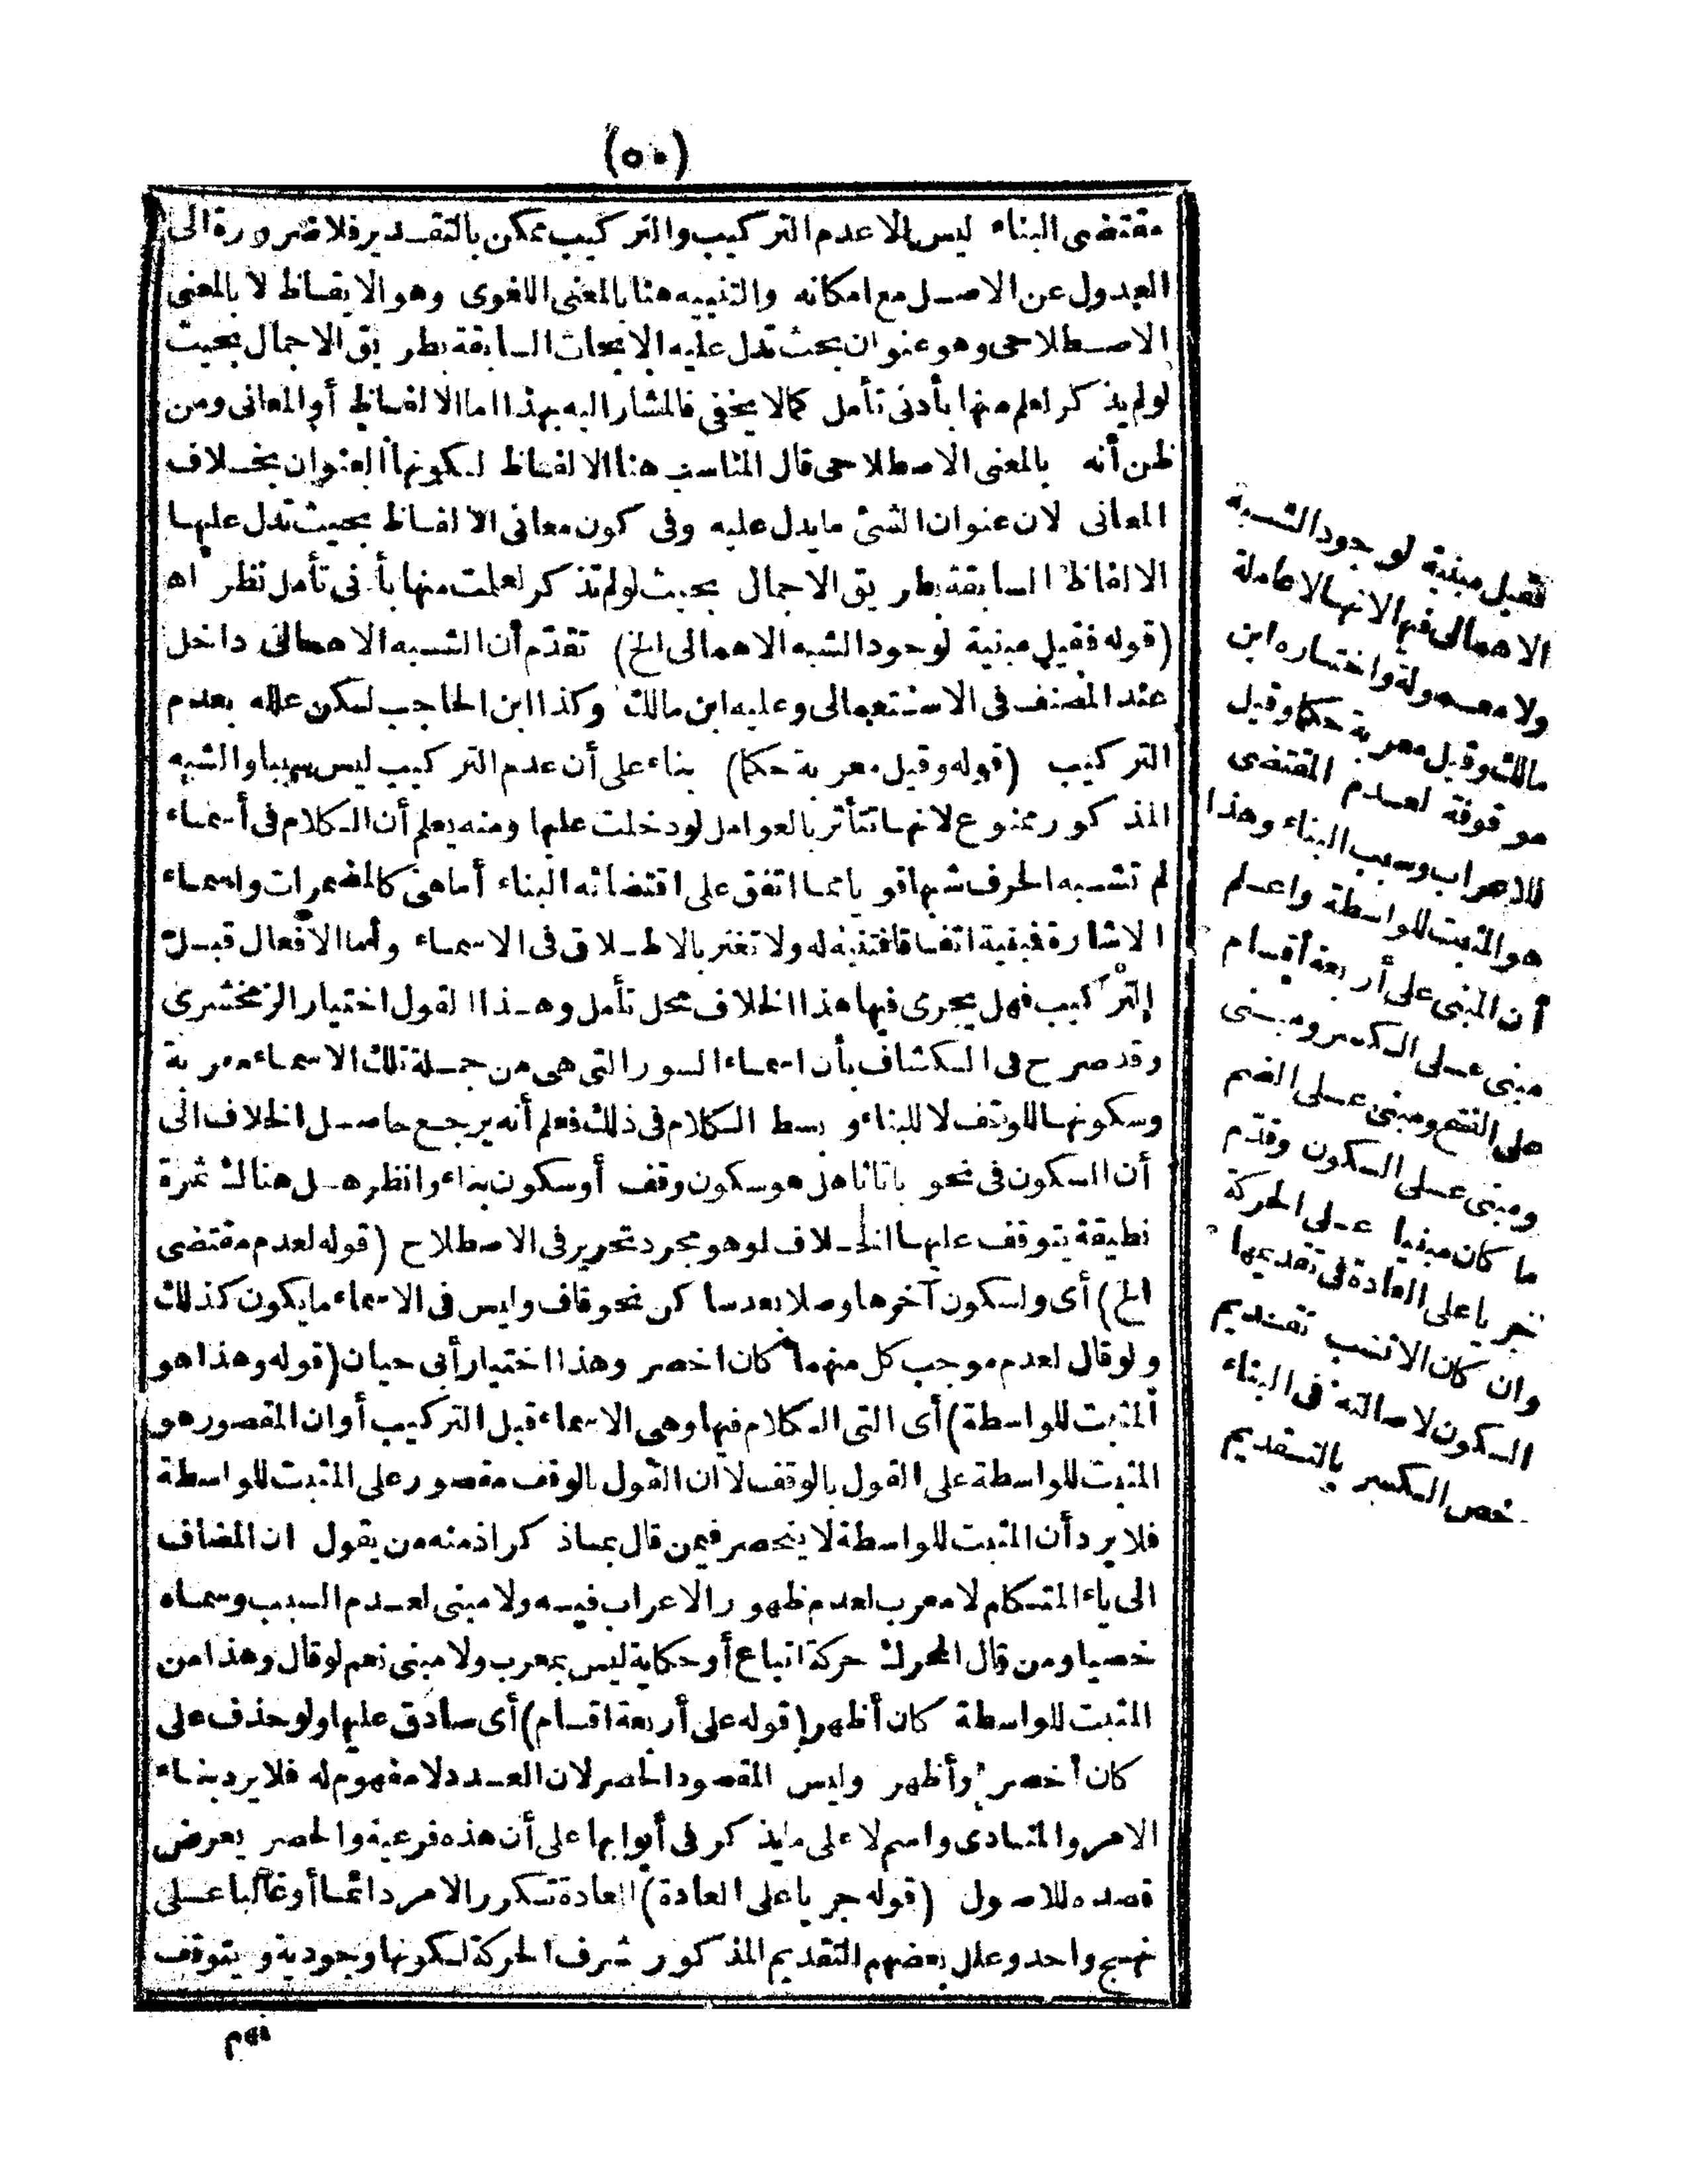 (٥٠)
مقتضى البناء ليس الا عدم التركيب والتركيب ممكن بالتقدير فلا ضرورة الى
العدول عن الاصل مع امكانه والتنبيه هنا بالمعنى اللغوى وهو الايقاظ لا بالمعنى
الاصطلاحى وهو عنوان بحث تدل عليه الابحاث السابقة بطريق الاجمال بحيث
لو لم يذكر لعلم منها بأدنى تأمل كما لا يخفى فالمشار اليه بهذا اما الالفاظ أو المعانى ومن
ظن أنه بالمعنى الاصطلاحى قال المناسب هنا الالفاظ لكونها العنوان بخلاف
المعانى لان عنوان الشئ ما يدل عليه وفى كون معانى الالفاظ بحيث تدل عليها
الالفاظ السابقة بطريق الاجمال بحيث لو لم تذكر لعلمت منها بأدنى تأمل نظر اه
(قوله فقيل مبنية لوجود الشبه الاهمالى الخ) تقدّم أن الشبه الاهمالى داخل
عند المصنف فى الاستعمالى وعليه ابن مالك وكذا ابن الحاجب لكن علله بعدم
التركيب (قوله وقيل معربة حكما) بناء على أن عدم التركيب ليس سببا والشبه
المذكور ممنوع لانها تتأثر بالعوامل لو دخلت عليها ومنه يعلم أن الكلام فى أسماء
لم تشبه الحرف شبها قويا مما اتفق على اقتضائه البناء أما هى كالمضمرات واسماء
الاشارة فمبنية اتفاقا فتنبه له ولا تغتر بالاطلاق فى الاسماء وأما الافعال قبل
التركيب فهل يجرى فيها هذا الخلاف محل تأمل وهذا القول اختيار الزمخشرى
وقد صرح فى الكشاف بأن اسماء السور التى هى من جملة تلك الاسماء معربة
وسكونها للوقف لا للبناء وبسط الكلام فى ذلك فعلم أنه يرجع حاصل الخلاف الى
أن السكون فى نحو با تا ثا هل هو سكون وقف أو سكون بناء وانظر هل هناك ثمرة
نطيقة يتوقف عليها الخلاف لو هو مجرد تحرير فى الاصطلاح (قوله لعدم مقتضى
الخ) أى ولسكون آخرها وصلا بعد ساكن نحو قاف وليس فى الاسماء ما يكون كذلك
ولو قال لعدم موجب كل منهما كان اخصر وهذا اختيار أبى حيان (قوله وهذا هو
المثبت للواسطة) أى التى الكلام فيها وهى الاسماء قبل التركيب أو ان المقصور هو
المثبت للواسطة على القول بالوقف لا ان القول بالوقف مقصور على المثبت للواسطة
فلا يرد أن المثبت للواسطة لا ينحصر فيمن قال بما ذكر اذ منه من يقول ان المضاف
الى ياء المتكلم لا معرب لعدم ظهور الاعراب فيه ولا مبنى لعدم السبب وسماه
خصيا ومن قال المحرك حركة اتباع أو حكاية ليس بمعرب ولا مبنى نعم لو قال وهذا من
المثبت للواسطة كان أظهر (قوله على أربعة اقسام) أى صادق عليها ولو حذف على
كان أخصر وأظهر وليس المقصود الحصر لان العدد لا مفهوم له فلا يرد بناء
الامر والمنادى واسم لا على ما يذكر فى أبوابها على أن هذه فرعية والحصر يعرض
قصده للاصول (قوله جريا على العادة) العادة تكرر الامر دائما أو غالبا على
نهج واحد وعلل بعضهم التقديم المذكور شرف الحركة لكونها وجودية ويتوقف
فهم
فقيل مبنية لوجود الشبه
الاهمالى فيها لانها لا عاملة
ولا معمولة واختاره ابن
مالك وقيل معربة حكما وقيل
موقوفة لعدم المقتضى
للاعراب وسبب البناء وهذا
هو المثبت للواسطة واعلم
أن المبنى على أربعة أقسام
مبنى على الكسر ومبنى
على الفتح ومبنى على الضم
ومبنى على السكون وقدّم
ما كان مبنيا على الحركة
جريا على العادة فى تقديمها
وان كان الانسب تقديم
السكون لاصالته فى البناء
خص الكسر بالتقديم